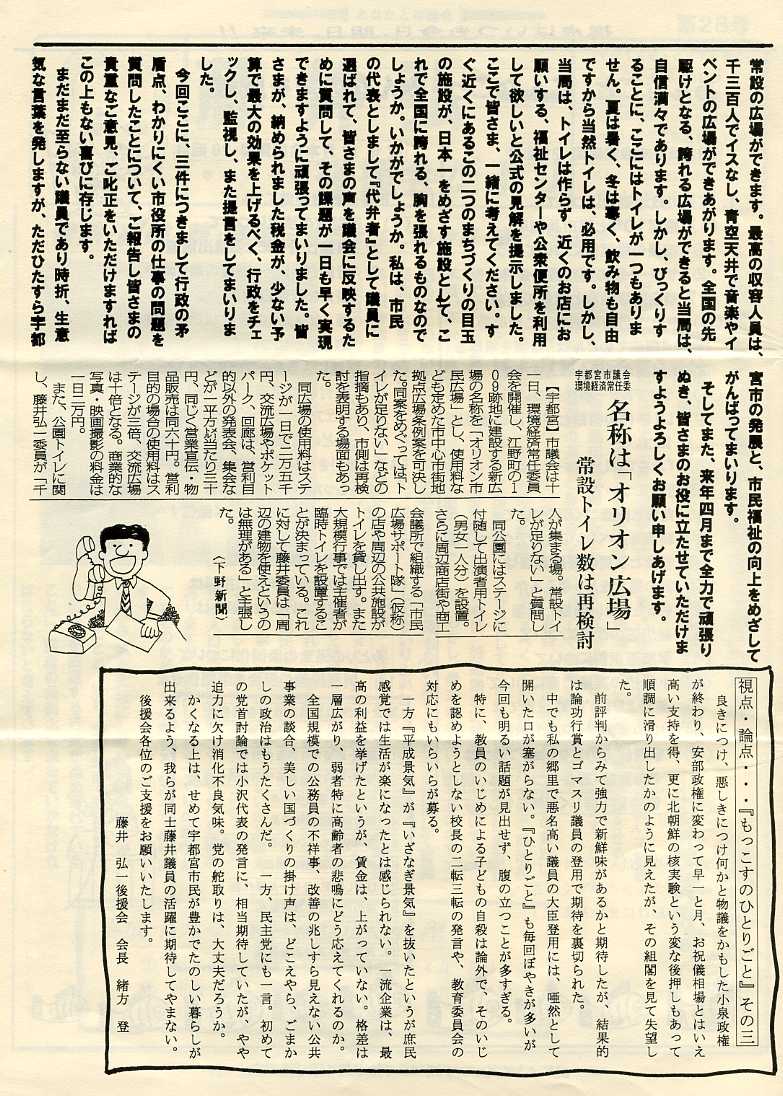 常設の広場ができます。最高の収容人員は、
千三百人でイスなし、青空天井で音楽やイ
ベントの広場ができあがります。全国の先
駆けとなる、誇れる広場ができると当局は、
自信満々であります。しかし、びっくりす
ることに、ここにはトイレが一つもありま
せん。夏は暑く、冬は寒く、飲み物も自由
ですから当然トイレは、必用です。しかし、
当局は、トイレは作らず、近くのお店にお
願いする、福祉センターや公衆便所を利用
して欲しいと公式の見解を提示しました。
ここで皆さま、一緒に考えてください。す
ぐ近くにあるこの二つのまちづくりの目玉
の施設が、日本一をめざす施設として、こ
れで全国に誇れる、胸を張れるものなので
しょうか。いかがでしょうか。私は、市民
の代表としまして『代弁者』として議員に
選ばれて、皆さまの声を議会に反映するた
めに質問して、その課題が一日も早く実現
できますように頑張ってまいりました。皆
さまが、納められました税金が、少ない予
算で最大の効果を上げるべく、行政をチェ
ックし、監視し、また提言をしてまいりま
した。
今回ここに、三件につきまして行政の矛
盾点、わかりにくい市役所の仕事の問題を
質問したことについて、ご報告し皆さまの
貴重なご意見、ご叱正をいただけますれば
この上もない喜びに存じます。
まだまだ至らない議員であり時折、生意
気な言葉を発しますが、ただひたすら宇都
宮市の発展と、市民福祉の向上をめざして
がんばってまいります。
そしてまた、来年四月まで全力で頑張り
ぬき、皆さまのお役に立たせていただけま
すようよろしくお願い申しあげます。
宇都宮市議会
環境経済常任委
名称は「オリオン広場」
常設トイレ数は再検討
【宇都宮】市議会は十
一日、環境経済常任委員
会を開催し、江野町の1
09跡地に建設する新広
場の名称を「オリオン市
民広場」とし、使用料な
ども定めた市中心市街地
拠点広場条例案を可決し
た。同案をめぐっては、ト
イレが足りない」などの
指摘もあり、市側は再検
討を表明する場面もあっ
た。
同広場の使用料はステ
ージが一日で二万五千
円、交流広場やポケット
パーク、回廊は、営利目
的以外の発表会、集会な
どが一平方㍍当たり三十
円、同じく営業宣伝・物
品販売は同六十円。営利
目的の場合の使用料はス
テージが三倍、交流広場
は十倍となる。商業的な
写真・映画撮影の料金は
一日二万円。
また、公園トイレに関
し、藤井弘一委員が「千
人が集まる場。常設トイ
レが足りない」と質問し
た。
同公園にはステージに
付随して出演者用トイレ
(男女一人分)を設置。
さらに周辺商店街や商工
会議所で組織する「市民
広場サポート隊」(仮称)
の店や周辺の公共施設が
トイレを貸し出す。また
大規模行事では主催者が
臨時トイレを設置するこ
とが決まっている。これ
に対して藤井委員は「周
辺の建物を使えというの
は無理がある」と主張し
た。
(下野新聞)
視点・論点・・・『もっこすのひとりごと』その三
良きにつけ、悪しきにつけ何かと物議をかもした小泉政権
が終わり、安部政権に変わって早一と月、お祝儀相場とはいえ
高い支持を得、更に北朝鮮の核実験という変な後押しもあって
順調に滑り出したかのように見えたが、その組閣を見て失望し
た。
前評判からみて強力で新鮮味があるかと期待したが、結果的
は論功行賞とゴマスリ議員の登用で期待を裏切られた。
中でも私の郷里で悪名高い議員の大臣登用には、唖然として
開いた口が塞がらない。『ひとりごと』も毎回ぼやきが多いが
今回も明るい話題が見出せず、腹の立つことが多すぎる。
特に、教員のいじめによる子どもの自殺は論外で、そのいじ
めを認めようとしない校長の二転三転の発言や、教育委員会の
対応にもいらいらが募る。
一方『平成景気』が『いざなぎ景気』を抜いたというが庶民
感覚では生活が楽になったとは感じられない。一流企業は、最
高の利益を挙げたというが、賃金は、上がっていない。格差は
一層広がり、弱者特に高齢者の悲鳴にどう応えてくれるのか。
全国規模での公務員の不祥事、改善の兆しすら見えない公共
事業の談合、美しい国づくりの掛け声は、どこえやら、ごまか
しの政治はもうたくさんだ。 一方、民主党にも一言。初めて
の党首討論では小沢代表の発言に、相当期待していたが、やや
迫力に欠け消化不良気味。党の舵取りは、大丈夫だろうか。
かくなる上は、せめて宇都宮市民が豊かでたのしい暮らしが
出来るよう、我らが同士藤井議員の活躍に期待してやまない。
後援会各位のご支援をお願いいたします。
藤井 弘一後援会 会長 緒方 登